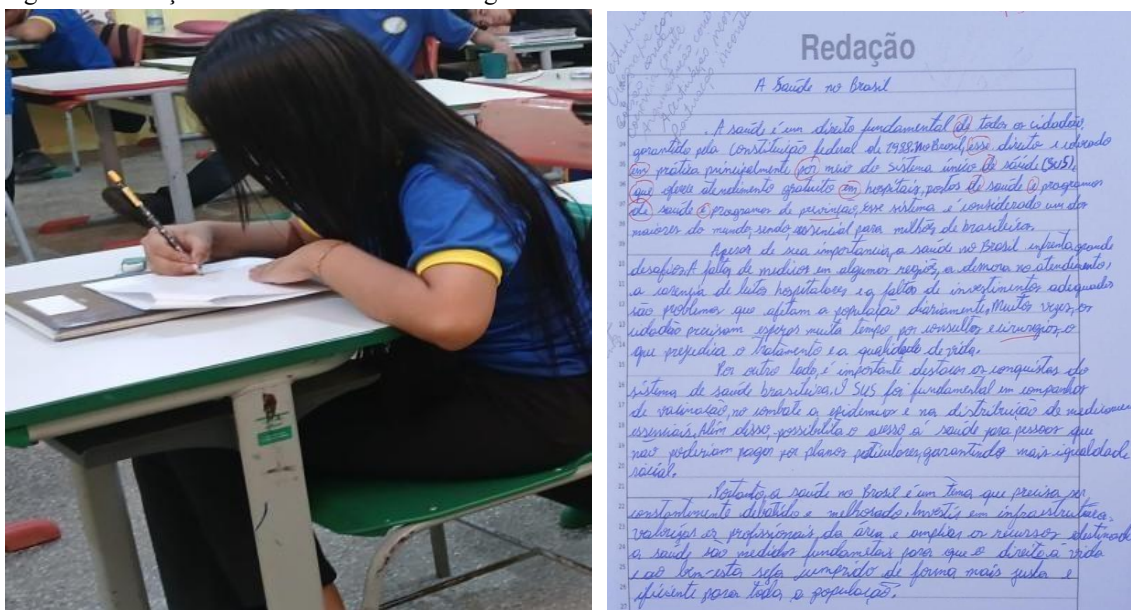 Redação
A Saúde no Brasil
A saúde é um direito fundamental de todos os cidadãos,
garantido pela Constituição federal de 1988. No Brasil, esse direito e colocado
em prática principalmente por meio do sistema único de saúde (SUS),
que oferece atendimento gratuito em hospitais, postos de saúde e programas
de saúde e programas de prevenção, esse sistema é considerado um dos
maiores do mundo, sendo, essencial para milhões de brasileiros.
Apesar de sua importancia, a saúde no Brasil enfrenta grande
desafios. A falta de medicos em algumas regiões, a demora no atendimento,
a carencia de leitos hospitalares e a falta de investimentos adequados
são problemas que afetam a população diariamente. Muitas vezes, os
cidadão precisam esperar muito tempo por consultas e cirurgias, o
que prejudica o tratamento e a qualidade de vida.
Por outro lado, é importante destacar as conquistas do
sistema de saúde brasileiro. O SUS foi fundamental em companhas
de vacinação, no combate a epidemias e na distribuição de medicamen
essenciais. Além disso, possibilita o acesso á saúde para pessoas que
nao poderiam pagar por planos paticulares, garantindo mais igualdade
social.
Portanto, a saúde no Brasil é um tema que precisa ser
constantimente debatido e melhorado. Investir em infraestrutura,
valorizar os profissionais da área e ampliar os recursos destinado
a saúde são medidas fundamentais para que o direito a vida
e ao bem-estar seja cumprido de forma mais justa e
eficiente para toda a população.